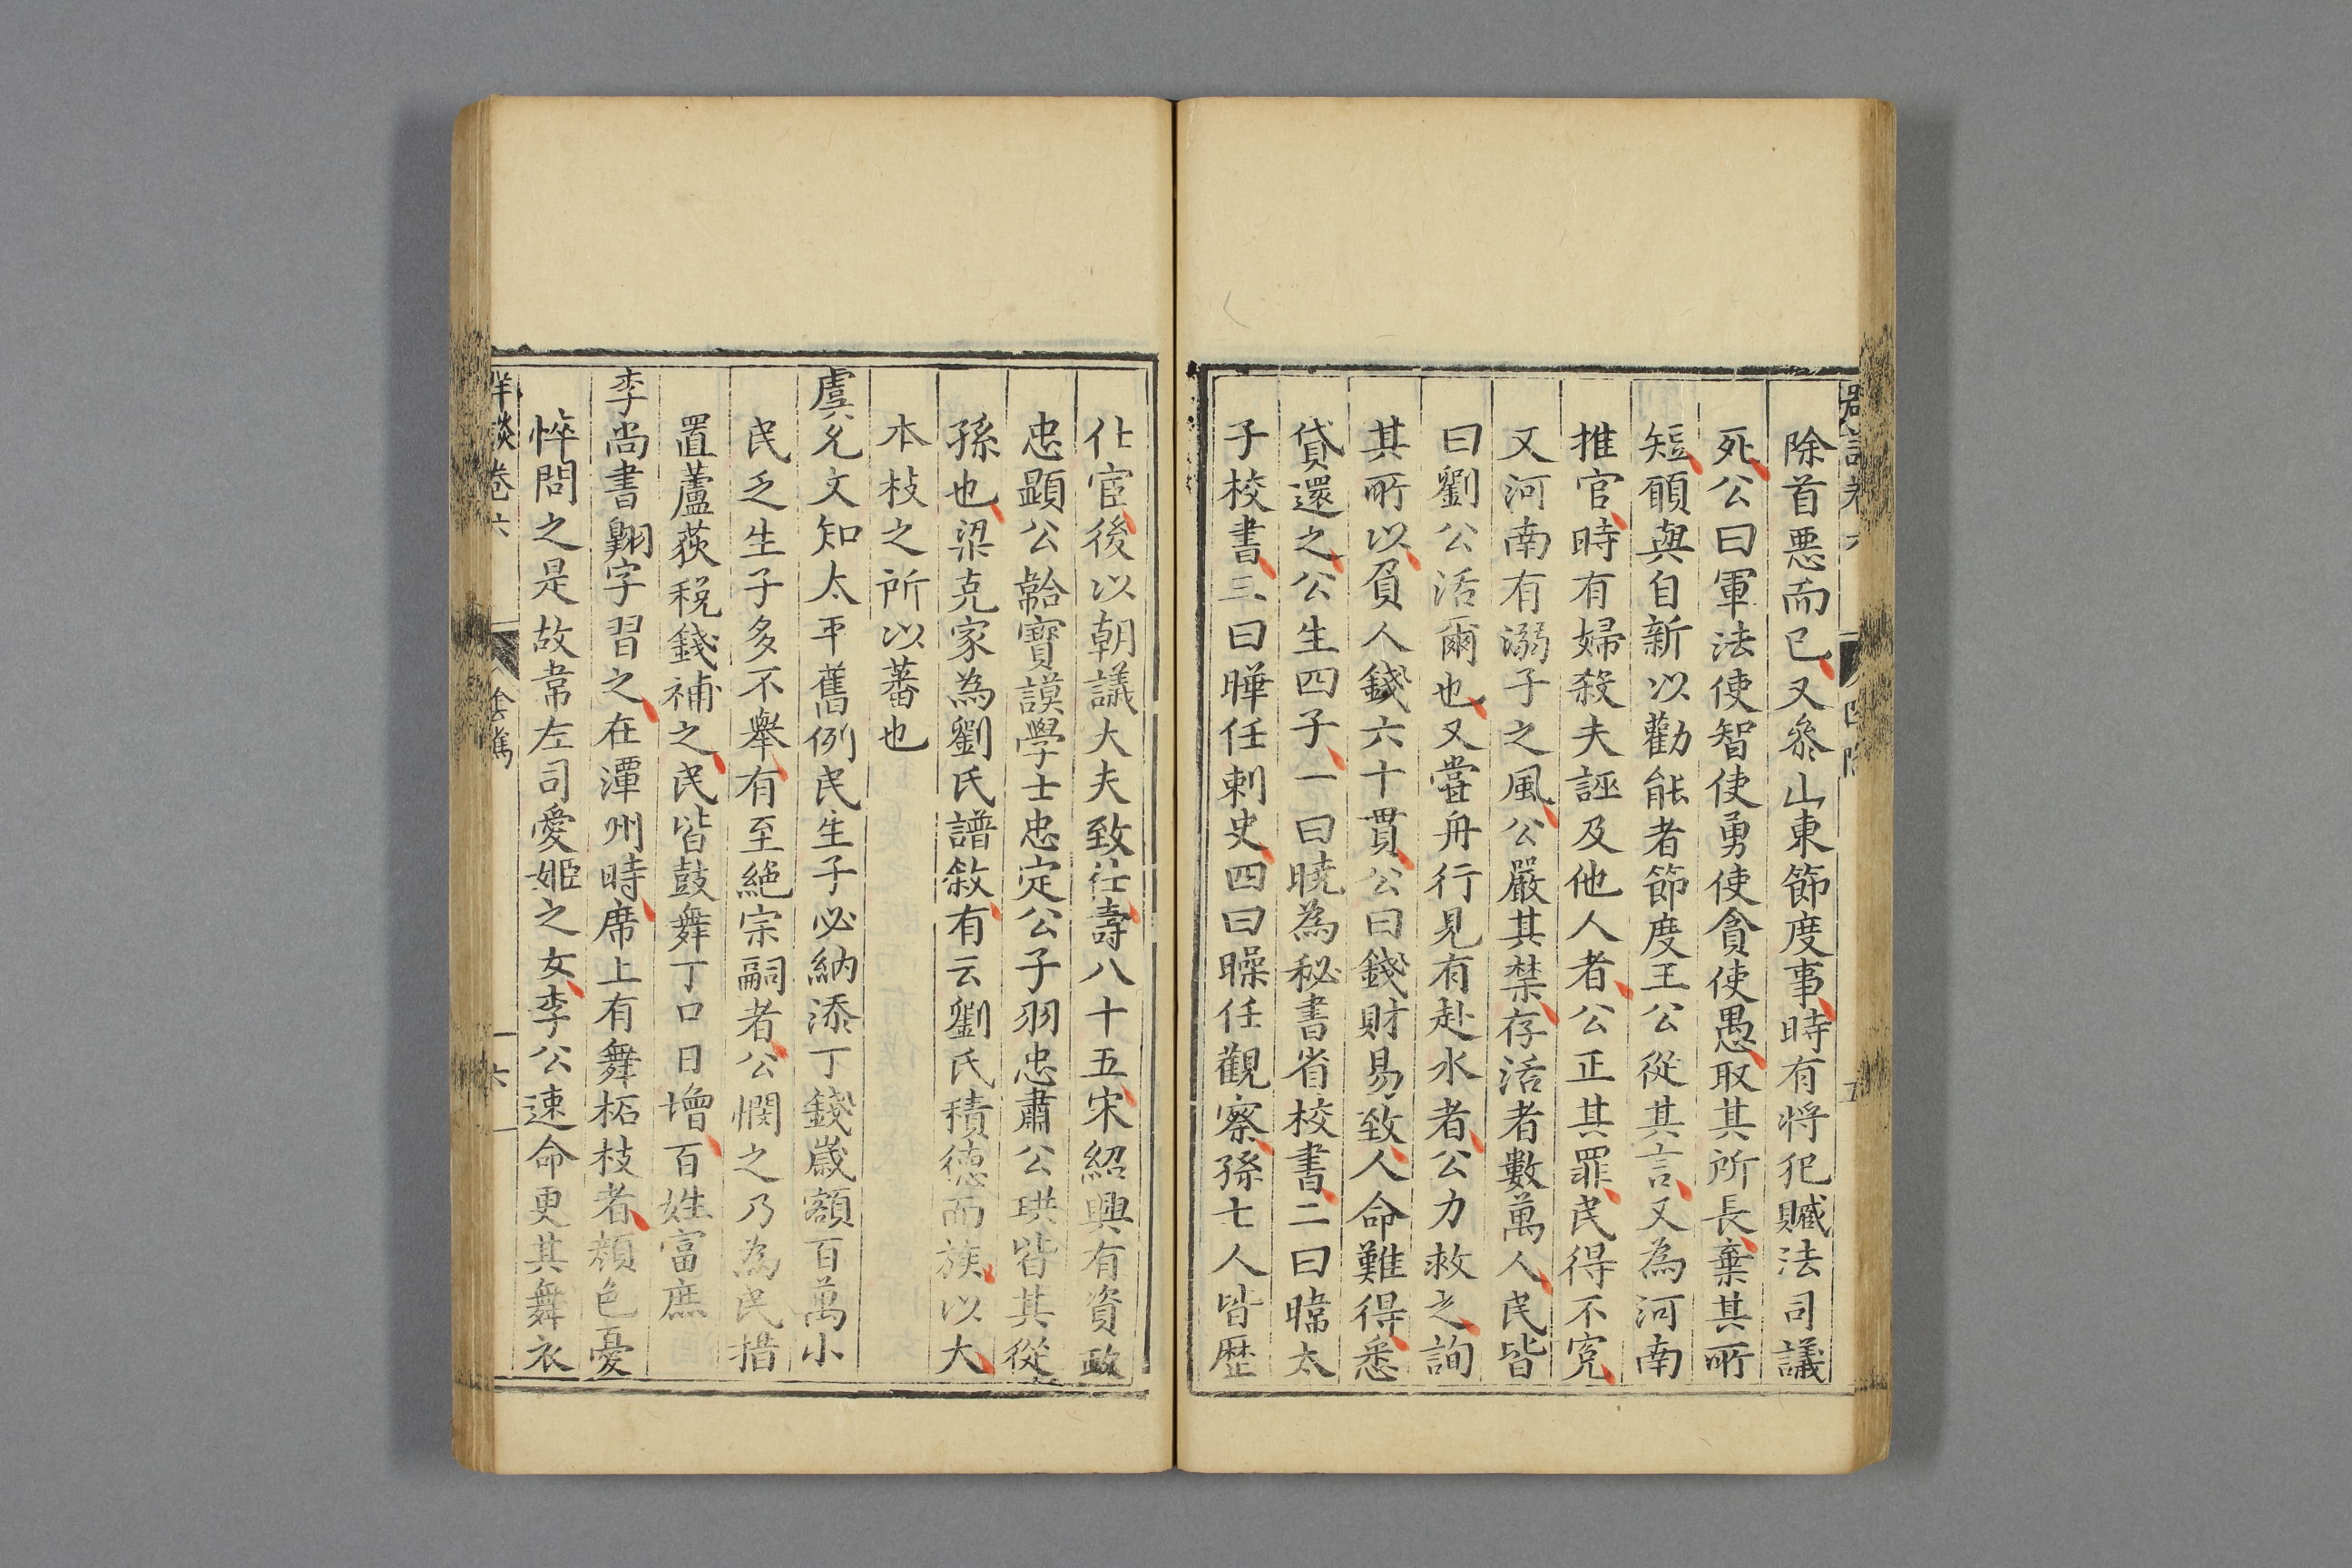 除首悪而已又叅山東節度事時有将犯贓法司議
死公曰軍法使智使勇使貪使愚取其所長棄其所
短願與自新以勸能者節度王公從其言又為河南
推官時有婦殺夫誣及他人者公正其罪民得不寃
又河南有溺子之風公嚴其禁存活者數萬人民皆
曰劉公活爾也又嘗舟行見有赴水者公力救之詢
其所以負人錢六十貫公曰錢財易致人命難得悉
貸還之公生四子一曰曉為秘書省校書二曰暐太
子校書三曰曄任刺史四曰㬤任觀察孫七人皆歷
仕宦後以朝議大夫致仕壽八十五宋紹興有資政
忠顯公韐寶謨學士忠定公子羽忠肅公珙皆其從
孫也梁克家為劉氏譜敘有云劉氏積德而族以大
本枝之所以蕃也
虞允文知太平舊例民生子必納添丁錢歲額百萬小
民乏生子多不舉有至絕宗嗣者公憫之乃為民措
置蘆荻稅錢補之民皆鼓舞丁口日增百姓富庶
李尚書翺字習之在潭州時席上有舞柘枝者顏色憂
悴問之是故韋左司愛姬之女李公速命更其舞衣
卷六